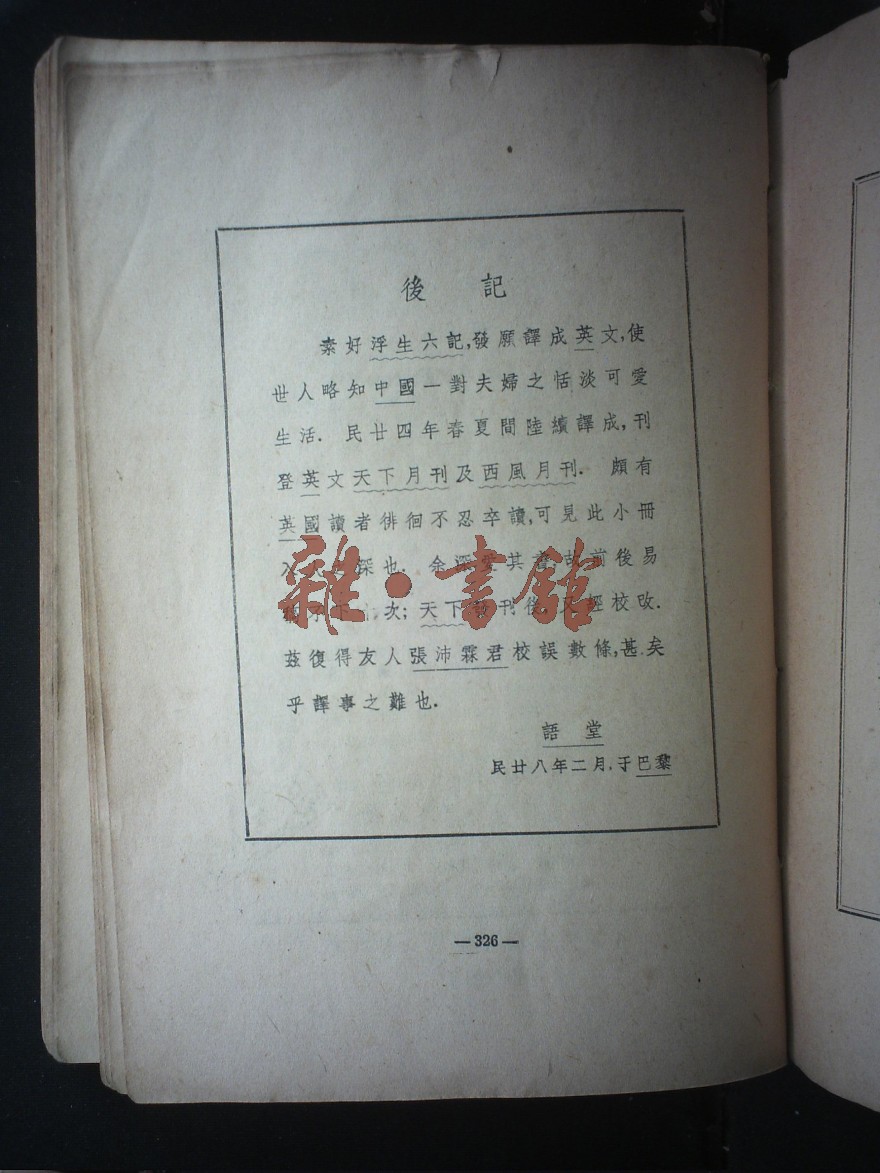 後 記
素好浮生六記,發願譯成英文,使
世人略知中國一對夫婦之恬淡可愛
生活. 民廿四年春夏間陸續譯成,刊
登英文天下月刊及西風月刊. 頗有
英國讀者徘徊不忍卒讀,可見此小冊
入 深也. 余深 其 故前後易
次; 天下 刊後, 又經校改.
茲復得友人張沛霖君校誤數條,甚矣
乎譯事之難也.
語 堂
民廿八年二月.于巴黎
—326—
雜·書館